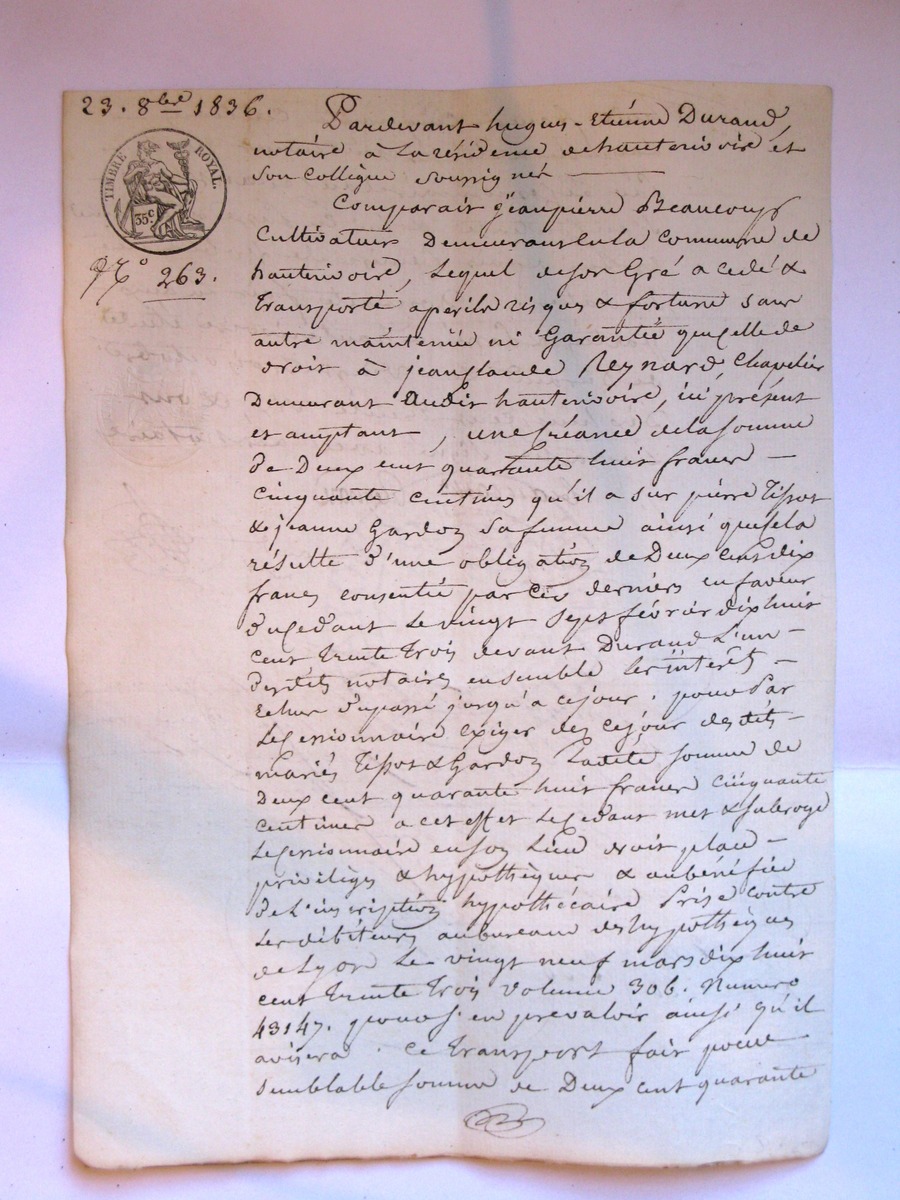 23. 8bre 1836.
TIMBRE ROYAL.
35c
No 263.
Pardevant hugues-Etiénne Durand,
notaire à La résidence de hauterivoire et
son collègue soussignés
Comparait jeanpierre Beaucoup
Cultivateur Demeurant en la commune de
hauterivoire, lequel de son Gré a cédé &
transporté a péril risques & fortune sans
autre maintenüe ni Garantie que celle de
droit à jean Claude Reynard, Chapelier
Demeurant audit hauterivoire, ici présent
et acceptant, une Créance de la somme
de Deux cent quarante huit francs
cinquante centimes qu'il a sur pierre Tissot
& jeanne Gardon sa femme ainsi que cela
résulte d'une obligation de Deux cent dix
francs consentie par ces derniers en faveur
du cédant Le vingt sept février dix huit
cent trente trois devant Durand L'un
desdits notaires ensemble les intérêts
Echus du passé jusqu'à ce jour. pour Par
Le cessionnaire exiger dès ce jour desdits
mariés Tissot & Gardon Ladite somme de
Deux cent quarante huit francs cinquante
centimes a cet effet Le cédant met & subroge
Le cessionnaire en son Lieu droit place
priviléges & hypothèques & au bénéfice
de L'inscription hypothécaire Prise contre
Les débiteurs au bureau des hypothèques
de Lyon Le vingt neuf mars dix huit
cent trente trois volume 306. Numero
43147. pour s'en prévaloir ainsi qu'il
avisera. Ce transport fait pour
semblable somme de Deux cent quarante